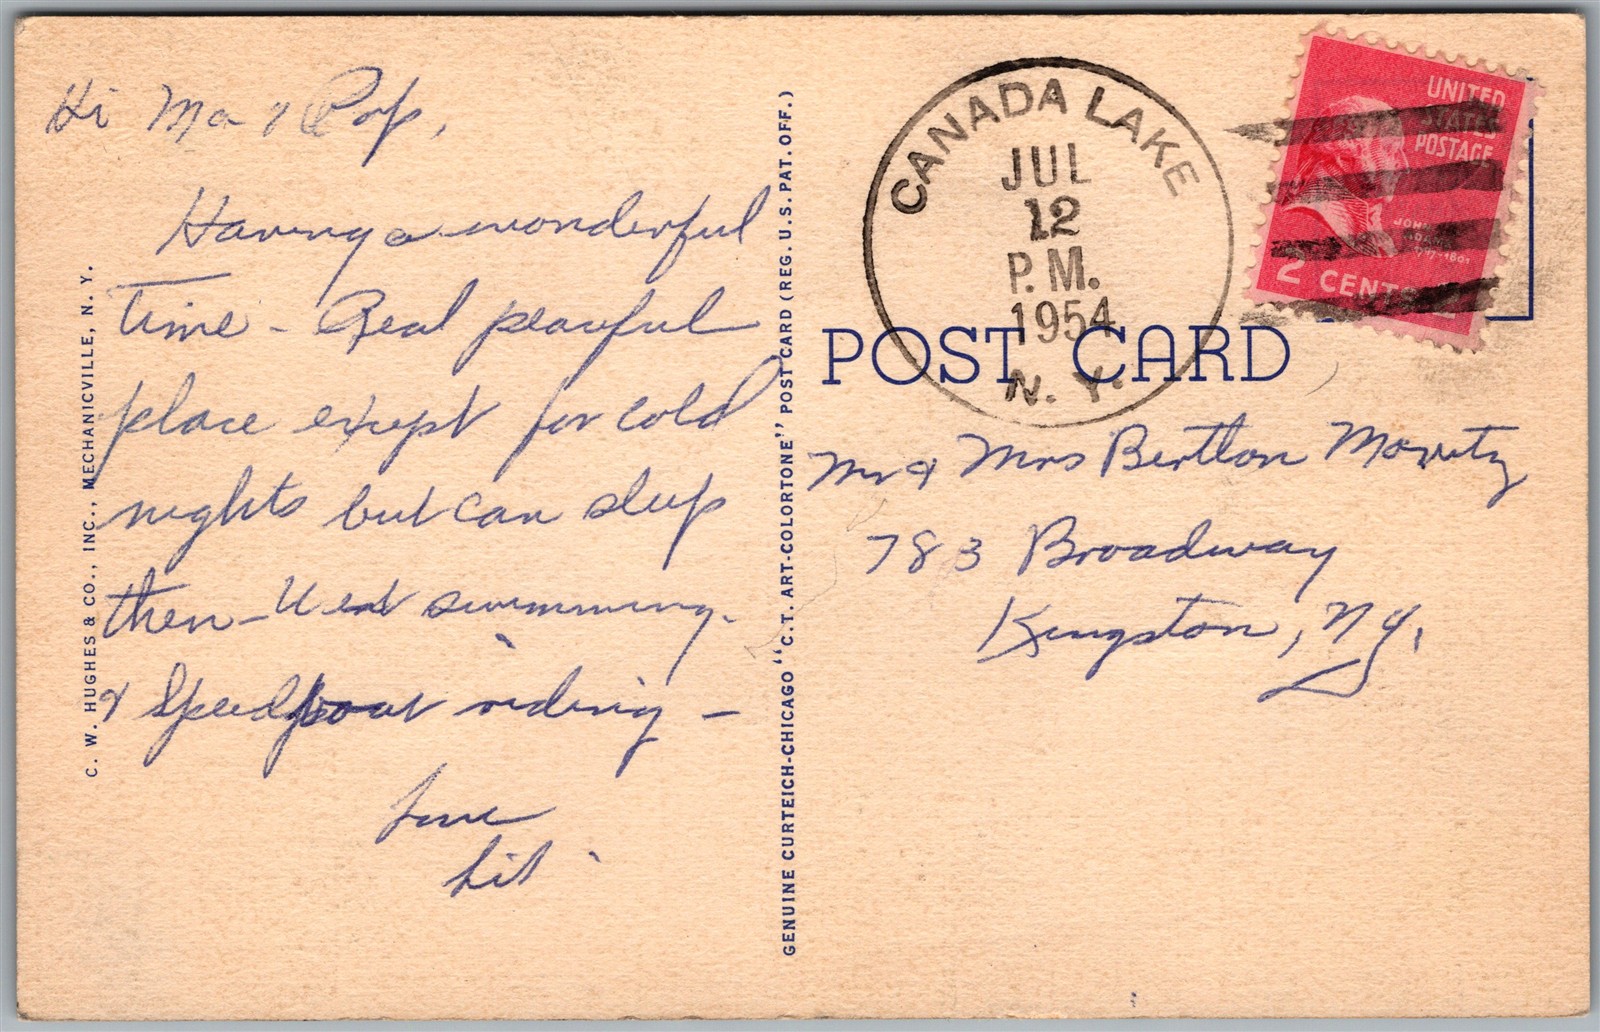 Hi Ma & Pop,
Having a wonderful
time - Real peaceful
place except for cold
nights but can sleep
then - Went swimming.
& Speedboat riding -
Love
C. W. HUGHES & CO., INC., MECHANICVILLE, N. Y.
GENUINE CURTEICH-CHICAGO "C.T. ART-COLORTONE" POST CARD (REG. U.S. PAT. OFF.)
CANADA LAKE
JUL
12
P.M.
1954
N. Y.
UNITED
STATES
POSTAGE
JOHN
ADAMS
2 CENTS
POST CARD
Mr & Mrs Bertlon
783 Broadway
Kingston, NY.